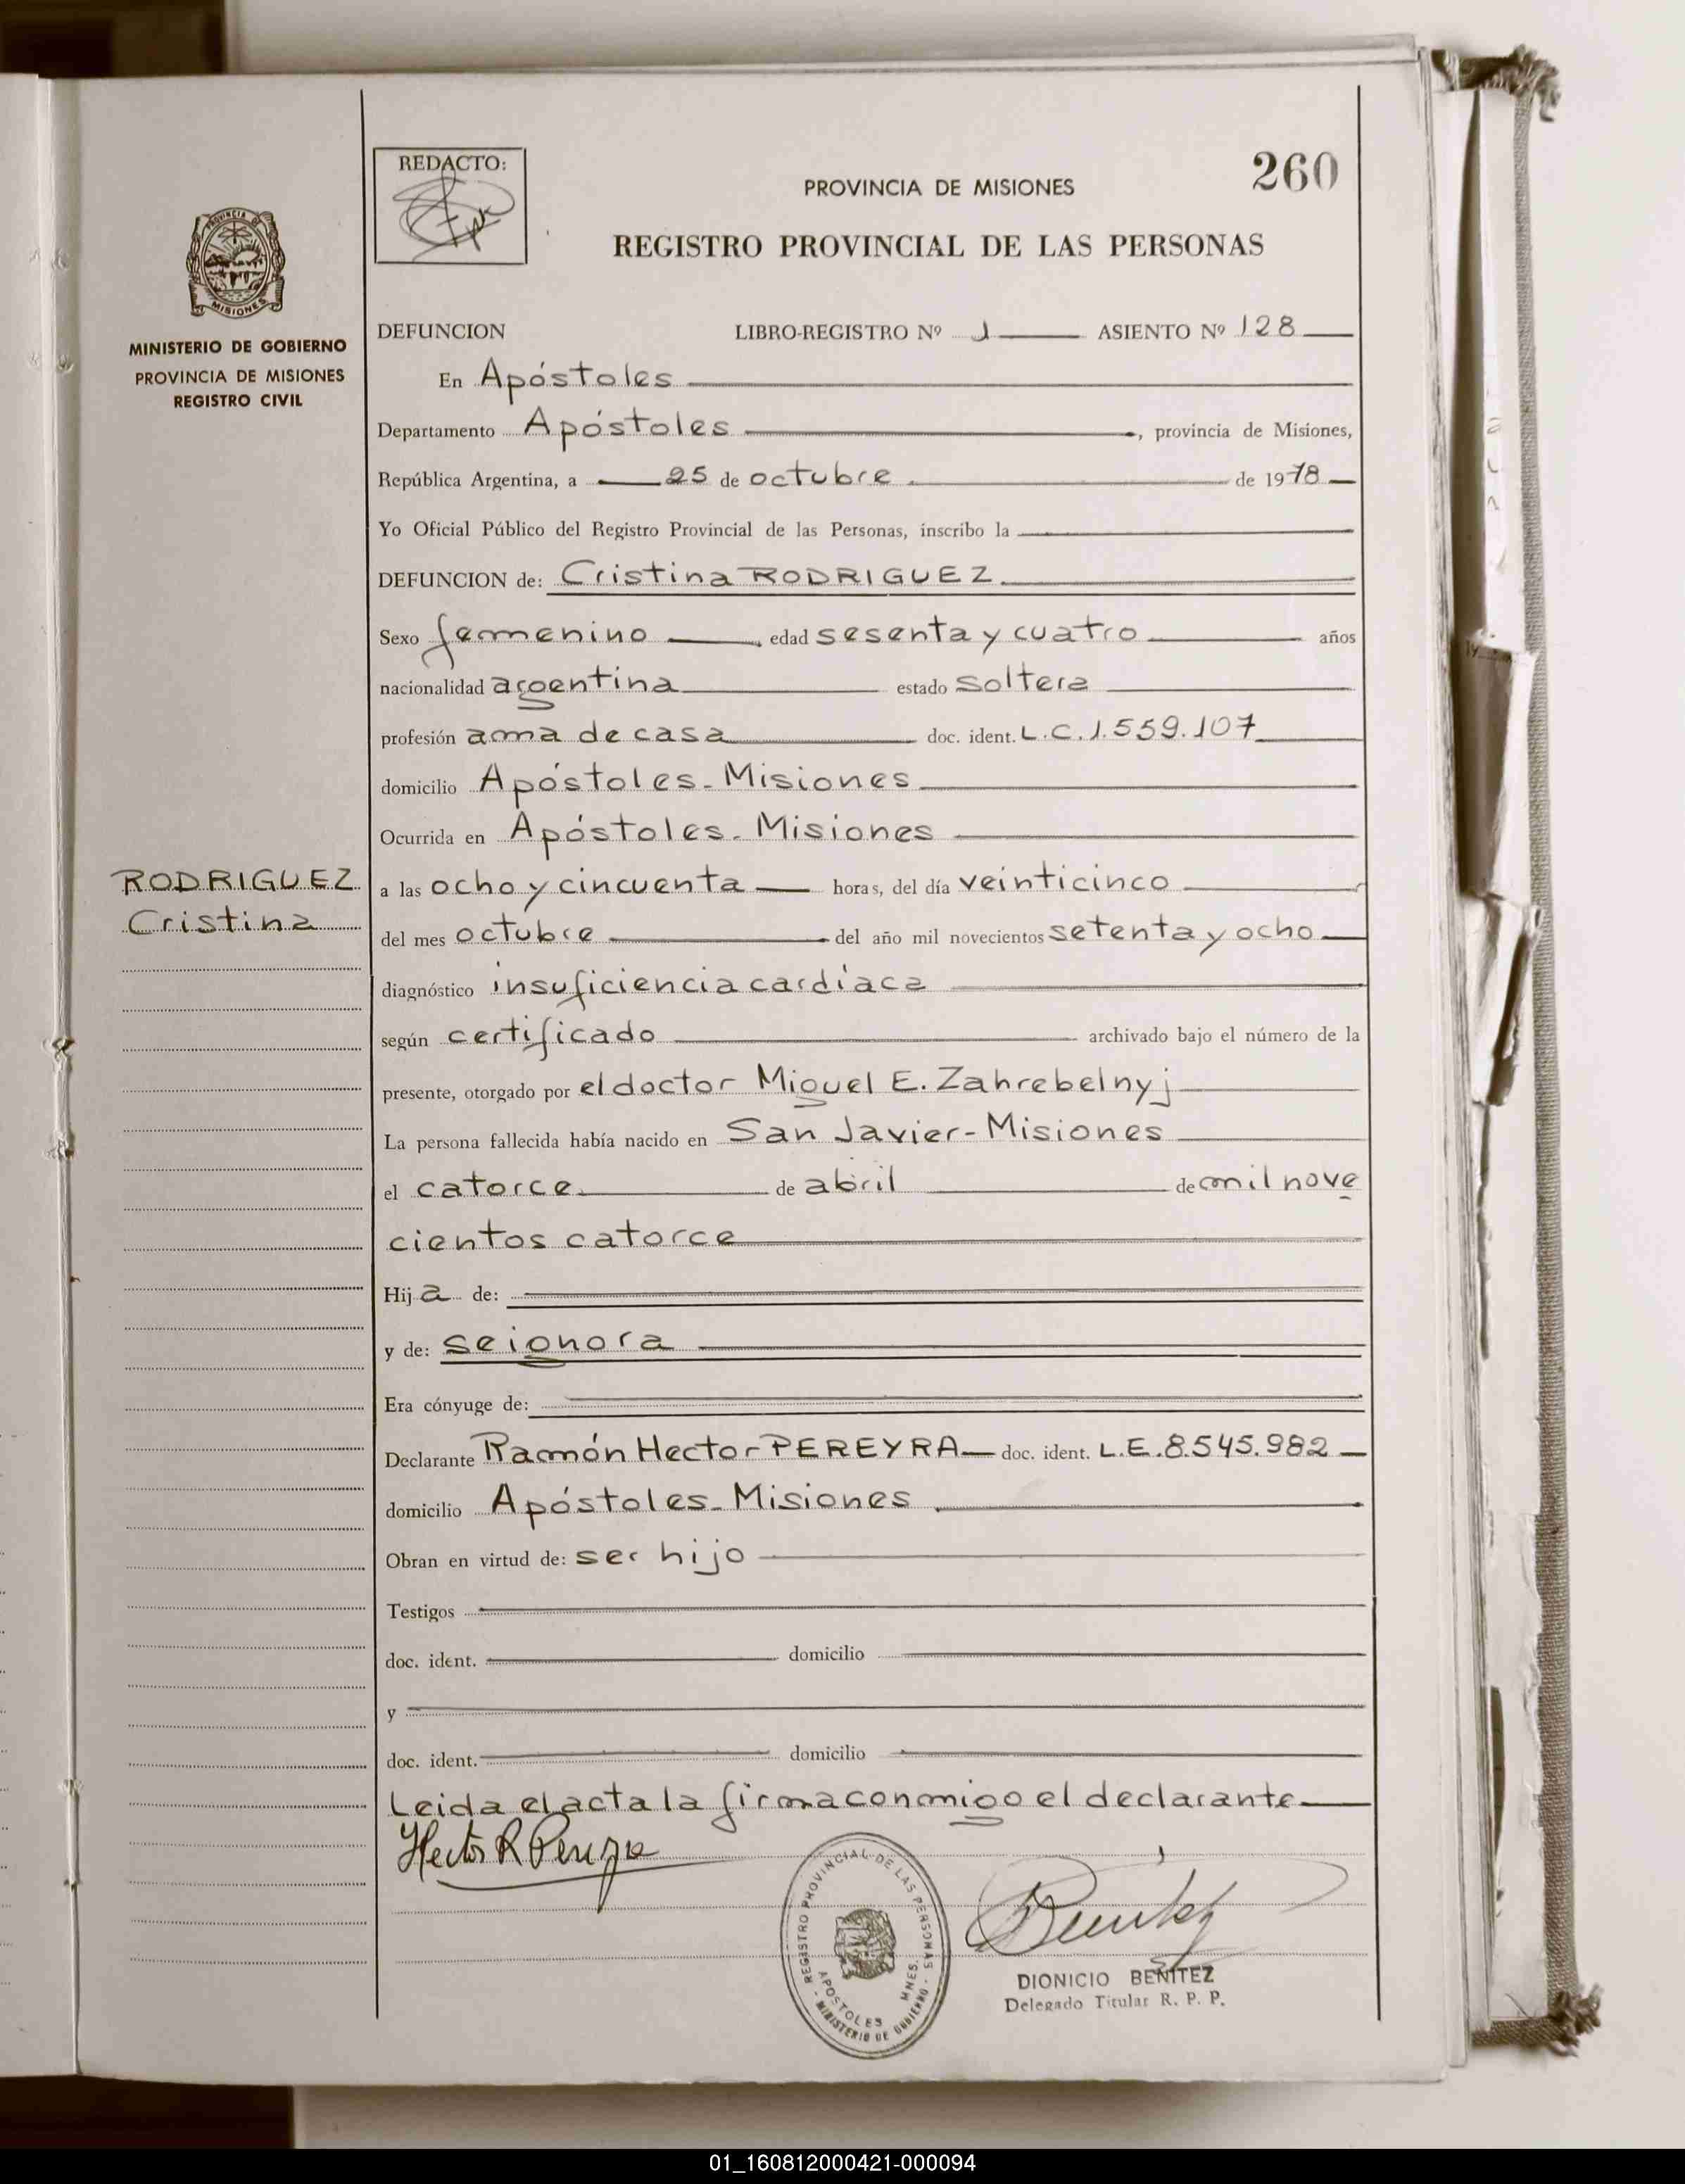 REDACTO:
260
PROVINCIA DE MISIONES
REGISTRO PROVINCIAL DE LAS PERSONAS
PROVINCIA DE
MISIONES
MINISTERIO DE GOBIERNO
PROVINCIA DE MISIONES
REGISTRO CIVIL
DEFUNCION LIBRO-REGISTRO Nº 1 ASIENTO Nº 128
En Apóstoles
Departamento Apóstoles, provincia de Misiones,
República Argentina, a 25 de octubre de 1978
Yo Oficial Público del Registro Provincial de las Personas, inscribo la
DEFUNCION de: Cristina RODRIGUEZ
Sexo femenino, edad sesenta y cuatro años
nacionalidad argentina estado soltera
profesión ama de casa doc. ident. L.C.1.559.107
domicilio Apóstoles-Misiones
Ocurrida en Apóstoles-Misiones
RODRIGUEZ
Cristina
a las ocho y cincuenta horas, del día veinticinco
del mes octubre del año mil novecientos setenta y ocho
diagnóstico insuficiencia cardíaca
según certificado archivado bajo el número de la
presente, otorgado por el doctor Miguel E. Zahrebelnyj
La persona fallecida había nacido en San Javier-Misiones
el catorce de abril de mil nove
cientos catorce
Hija de:
y de: se ignora
Era cónyuge de:
Declarante Ramón Hector PEREYRA doc. ident. L.E.8.545.982
domicilio Apóstoles-Misiones
Obran en virtud de: ser hijo
Testigos
doc. ident. domicilio
y
doc. ident. domicilio
Leida el acta la firma conmigo el declarante
Hector R Pereyra
REGISTRO PROVINCIAL DE LAS PERSONAS
APOSTOLES MNES.
- MINISTERIO DE GOBIERNO -
Benitez
DIONICIO BENITEZ
Delegado Titular R. P. P.
01_160812000421-000094